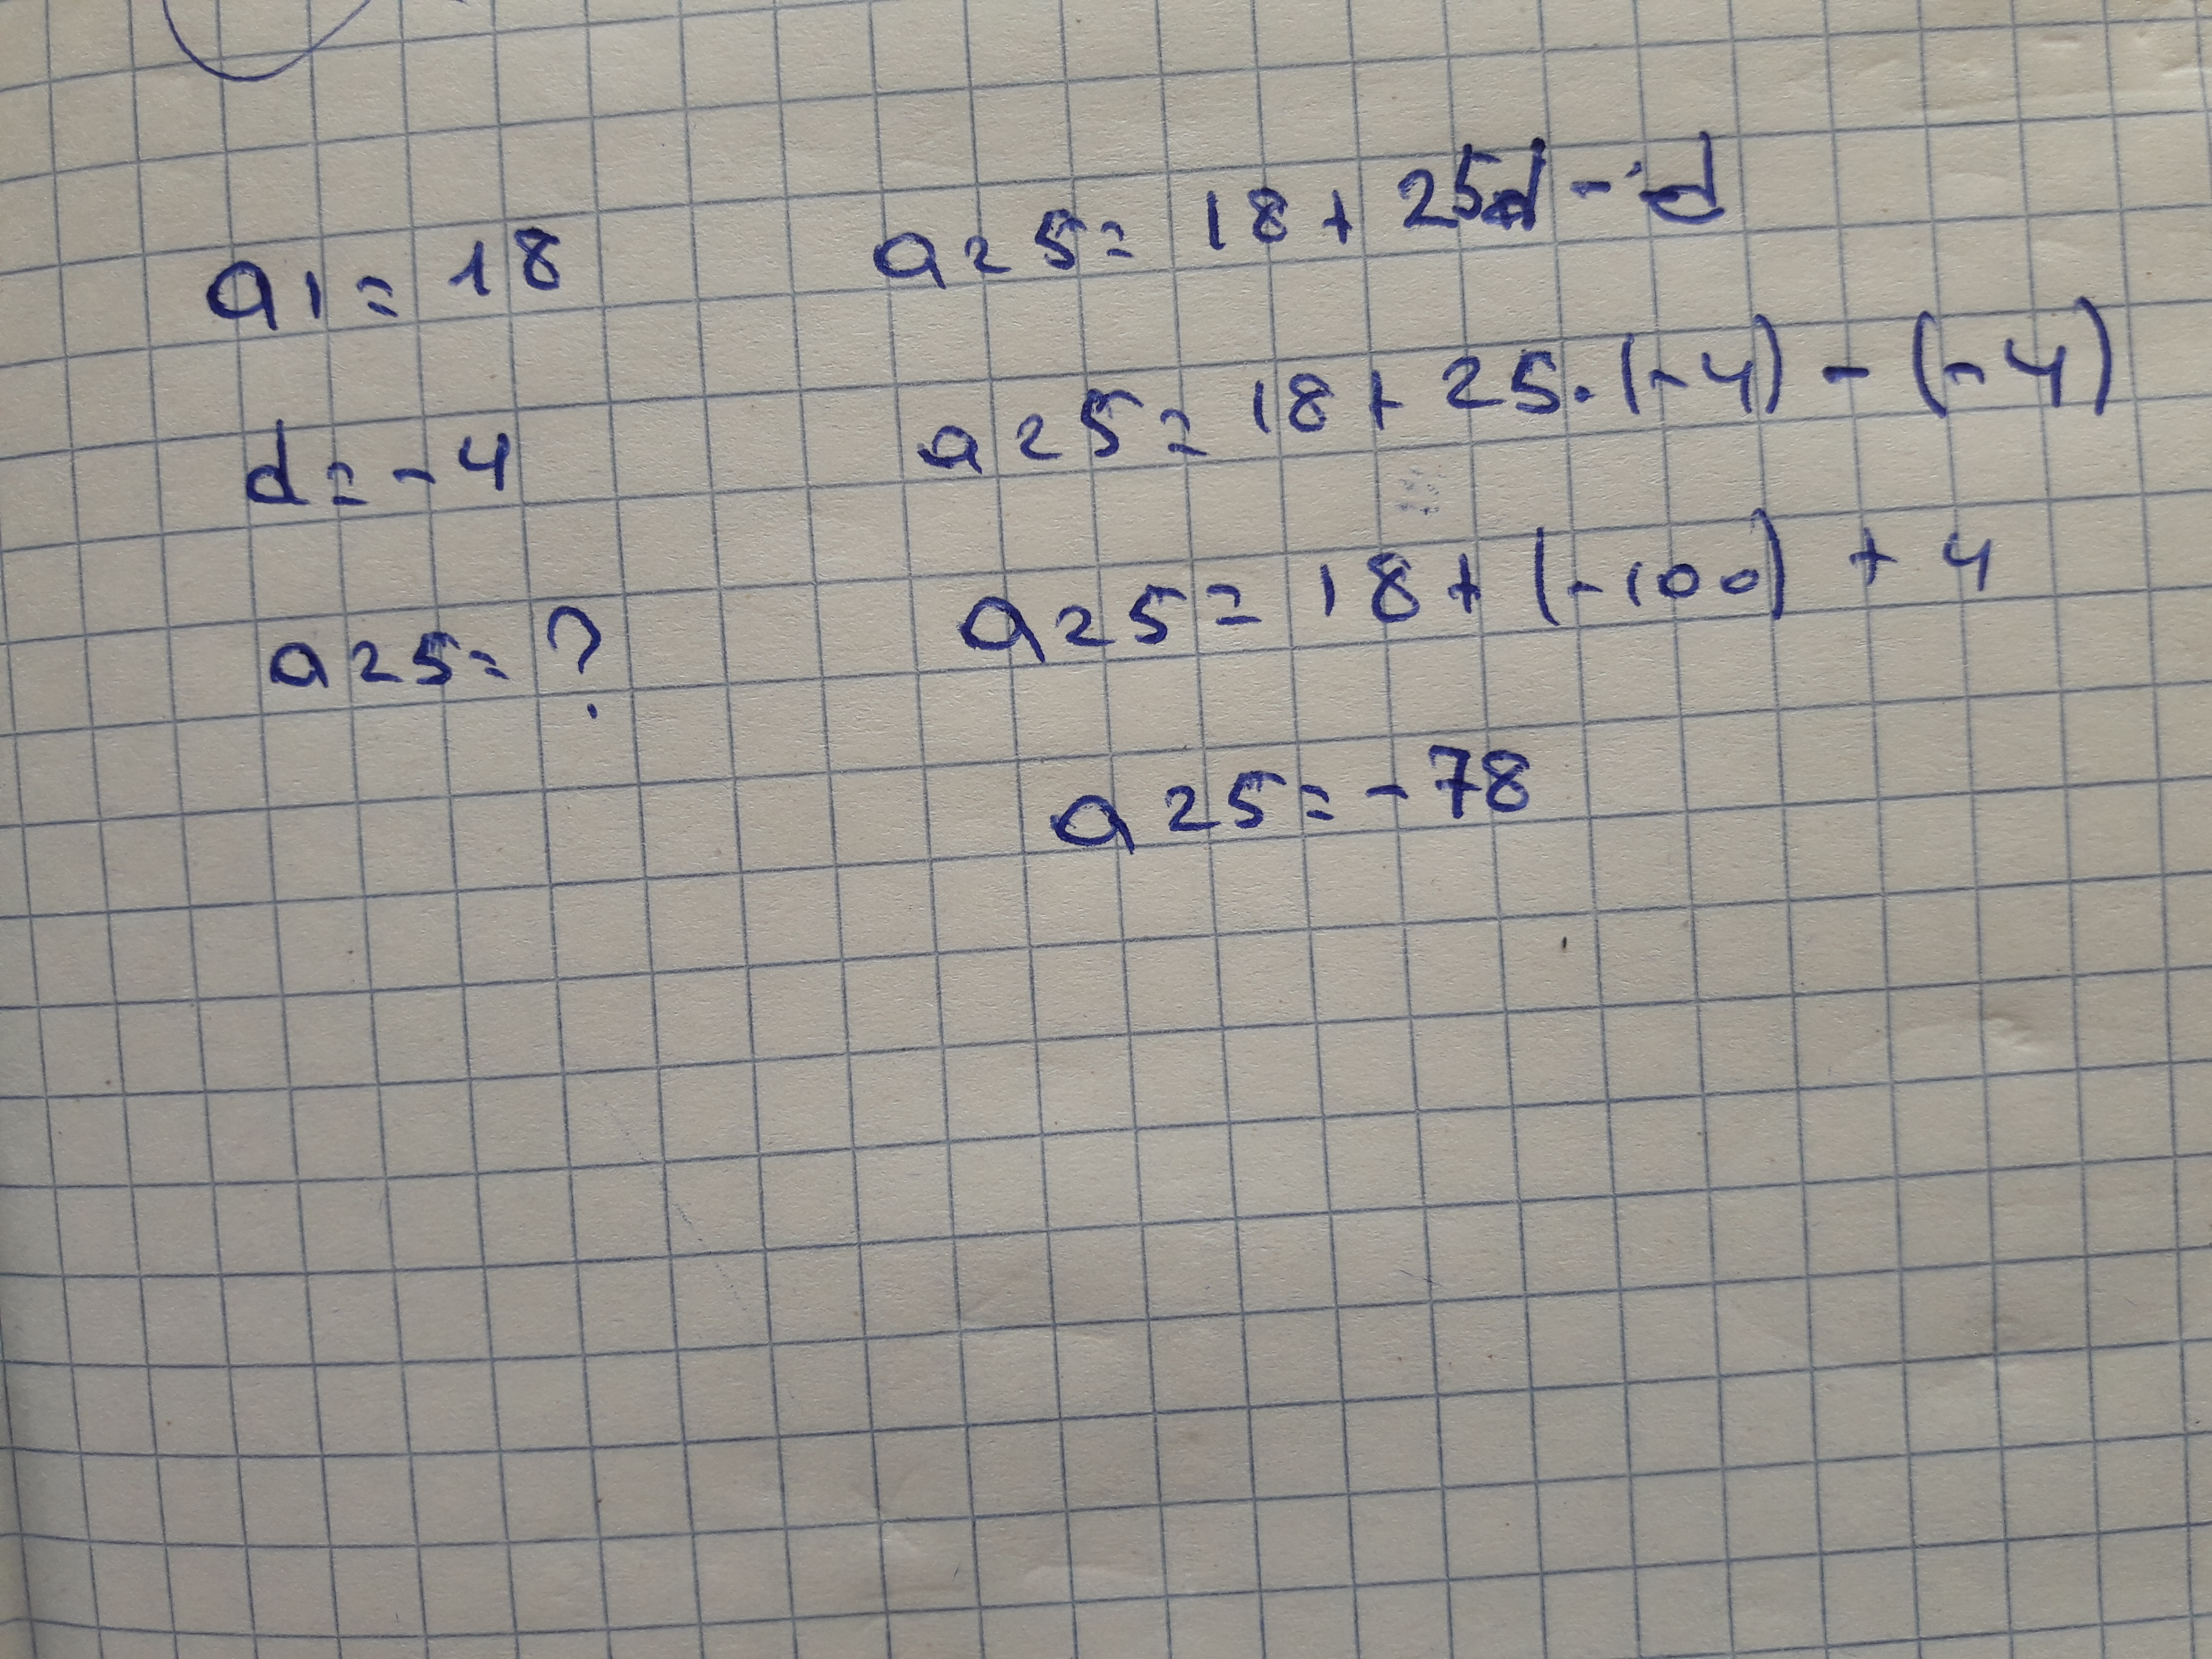 a1 = 18
d = -4
a25 = ?
a25 = 18 + 25d - d
a25 = 18 + 25 · (-4) - (-4)
a25 = 18 + (-100) + 4
a25 = -78